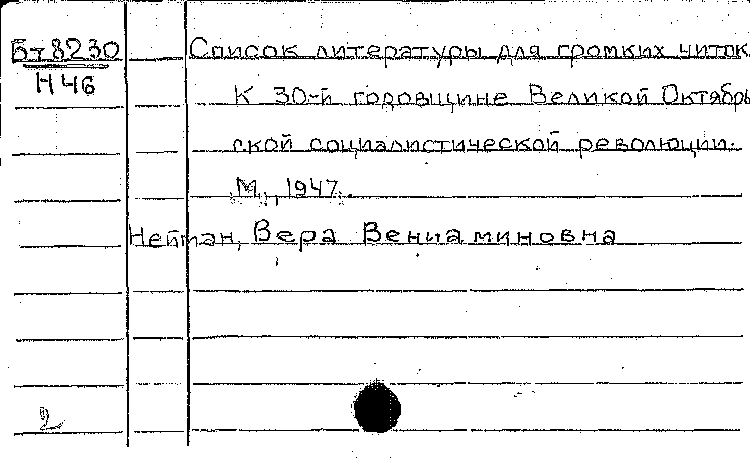 Бт 8230 Список литературы для громких читок
Н 46 К 30-й годовщине Великой Октябрь
ской социалистической революции.
М., 1947.
Нейман, Вера Вениаминовна
2